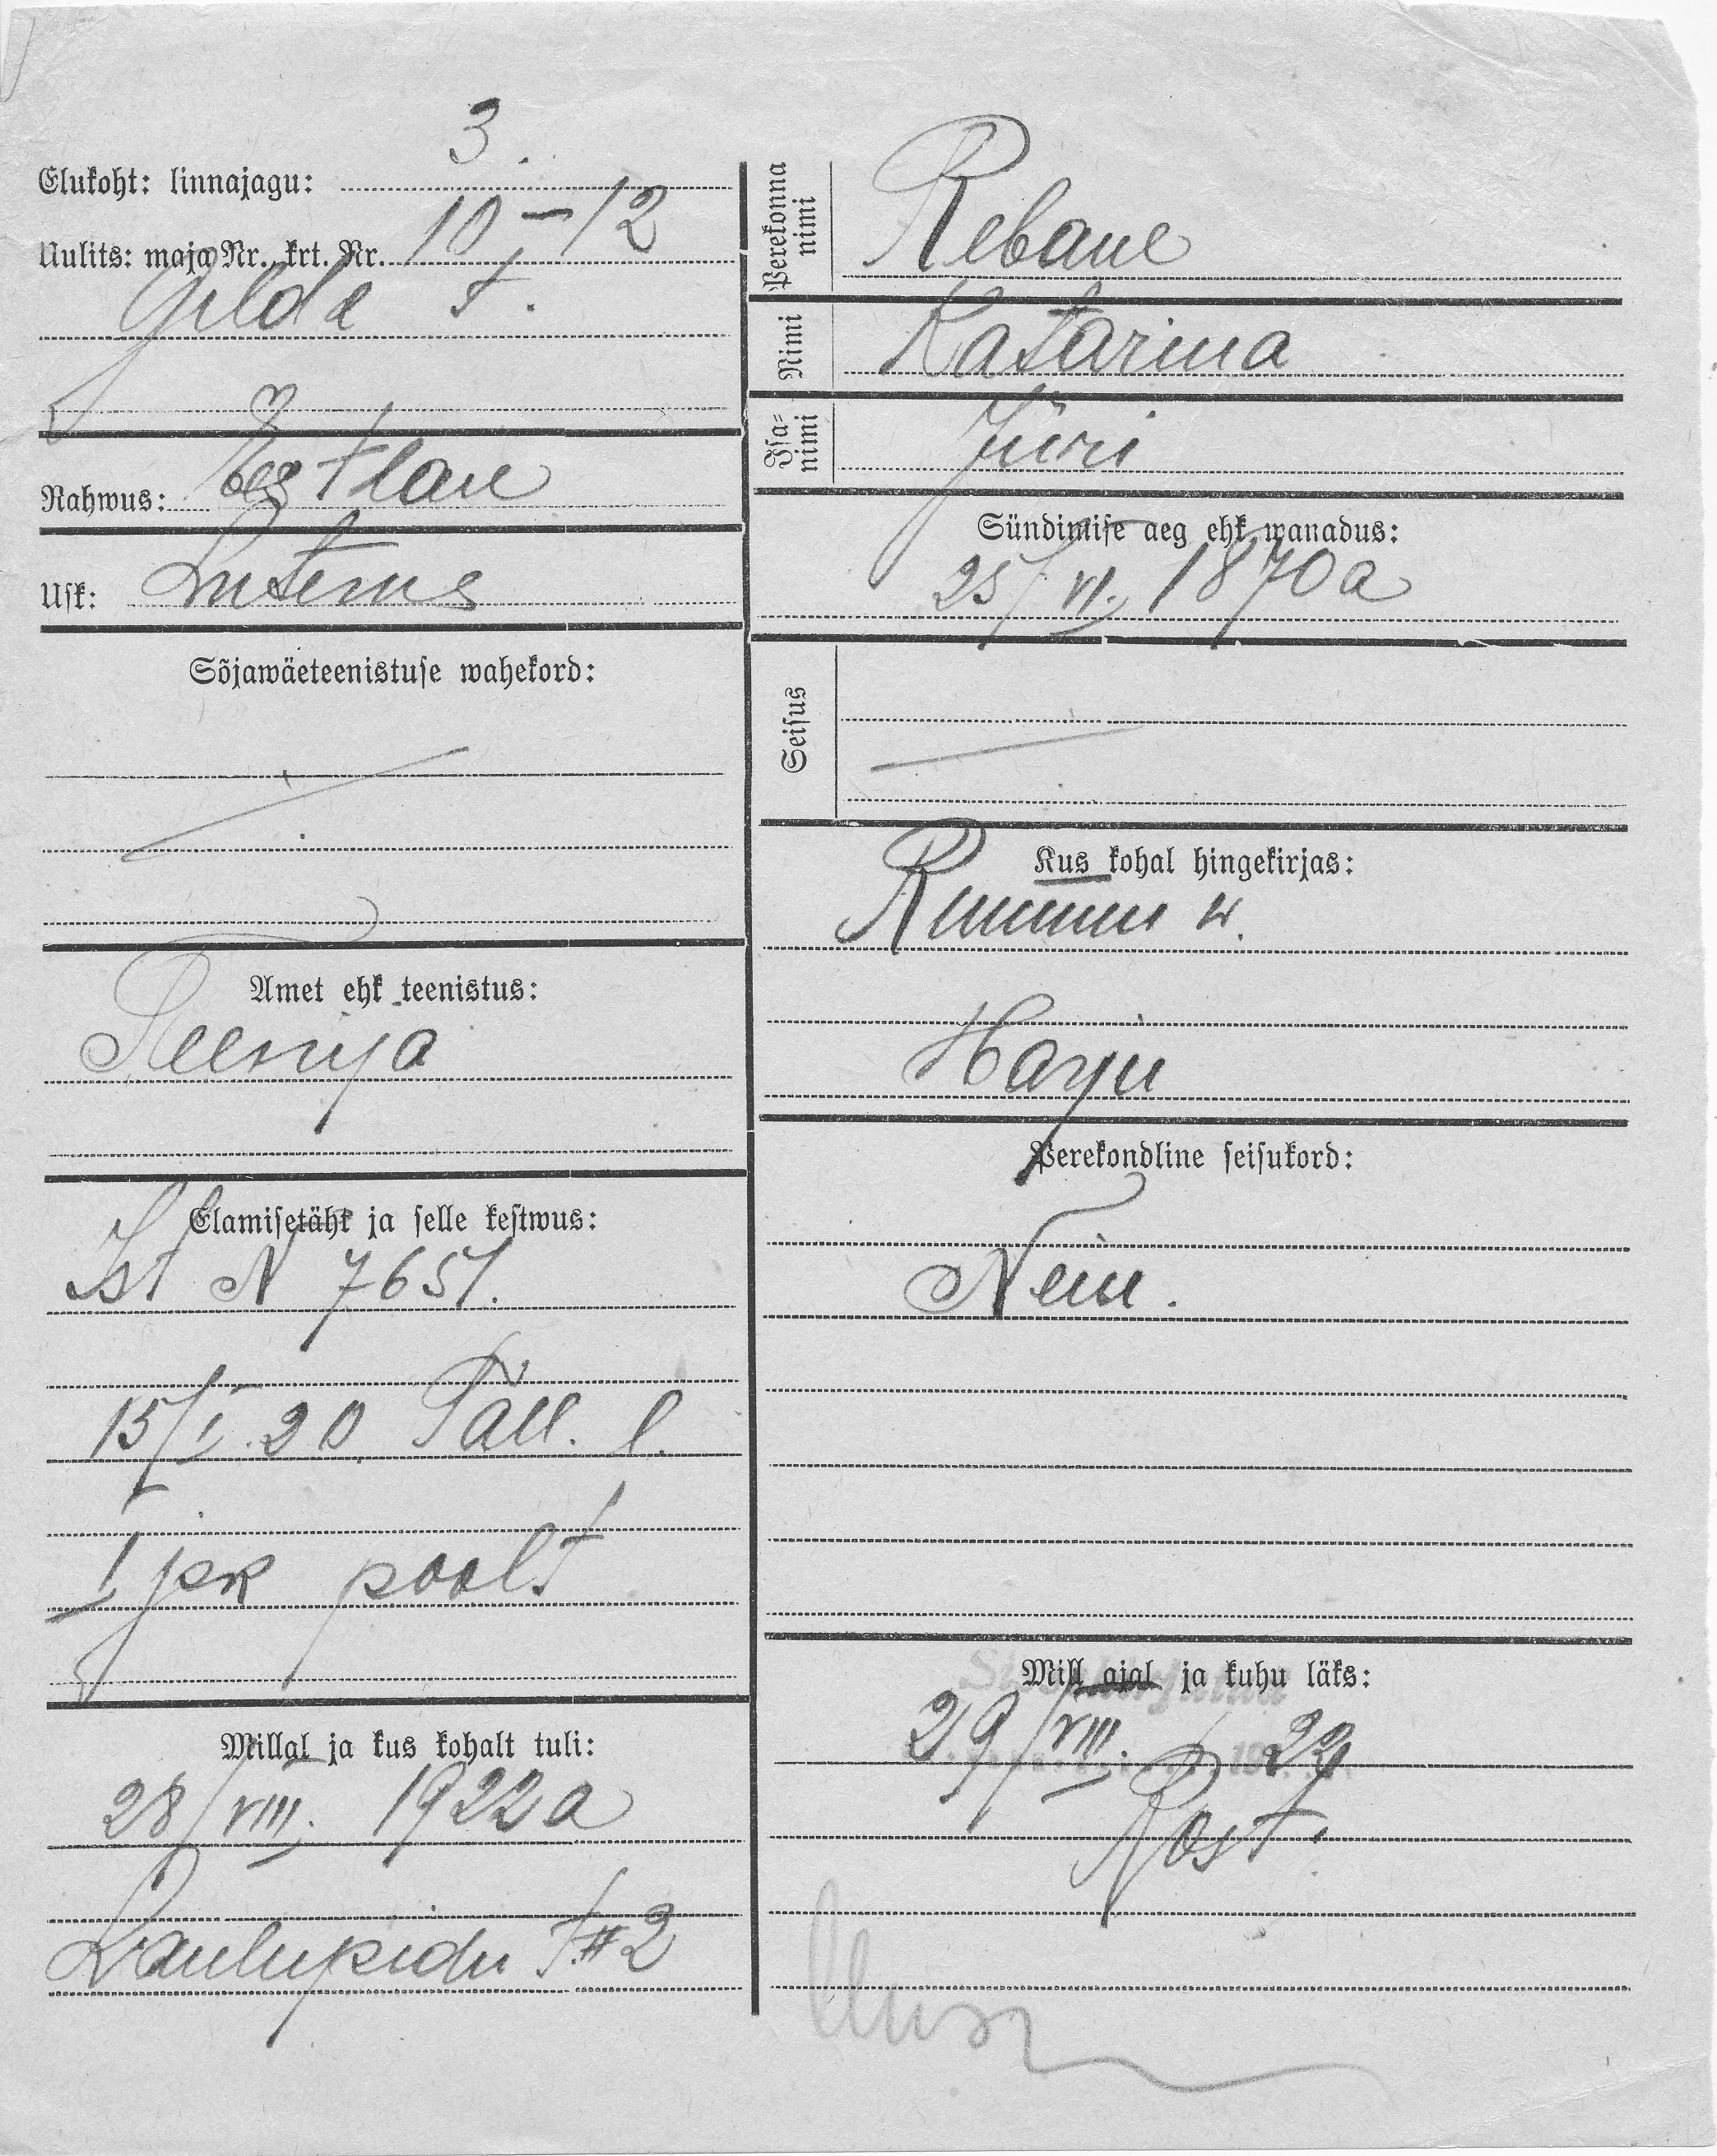 3.
Elukoht: linnajagu:
Uulits: maja Nr., krt. Nr. 10-12
Gilde t.
Rahwus: Eestlane
Usk: Luterus
Sõjawäeteenistuse wahekord:
Amet ehk teenistus:
Teenija
Elamisetäht ja selle kestwus:
Ist N 7651.
15/I.20 Tall. l.
1 jsk poolt
Millal ja kus kohalt tuli:
28/VIII. 1922 a
Laulupidu t. #2
Perekonna nimi
Rebane
Nimi
Katarina
Isa-nimi
Jüri
Sündimise aeg ehk wanadus:
25/VI. 1870 a
Seisus
Kus kohal hingekirjas:
Rummu w.
Harju
Perekondline seisukord:
Neiu.
Mill ajal ja kuhu läks:
29/VIII. 22